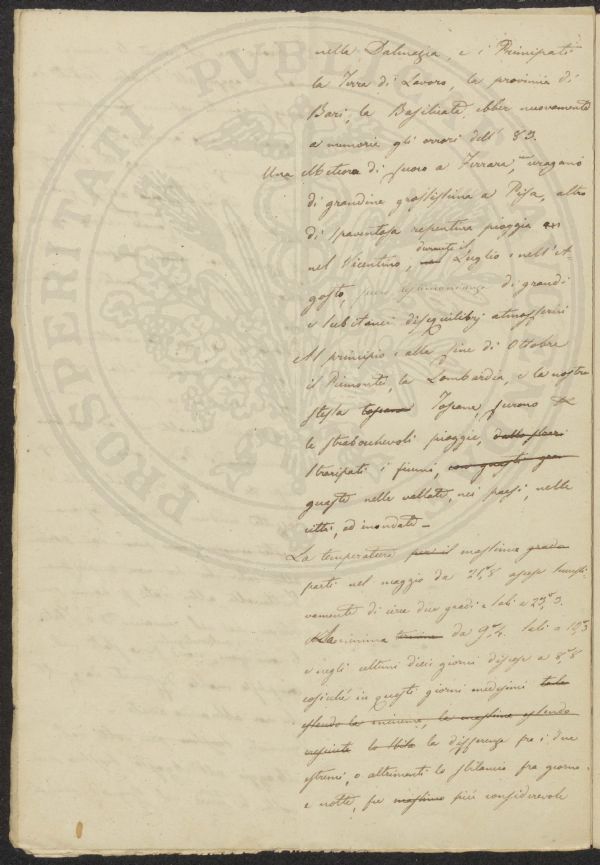 nella Dalmazia, e i Principati
la Terra di Lavoro, la provincia di
Bari, la Basilicata, ebber nuovamente
a memoria gli orrori dell' 83.
Una Meteora di fuoco a Ferrara, uragano
di grandine grossissima a Pisa, altro
di spaventosa repentina pioggia
nel Vicentino, durante il Luglio e nell'A-
gosto, testimonianze di grandi
e subitanei disequilibrj atmosferici
Al principio e alla fine di Ottobre
il Piemonte, la Lombardia, e la nostra
stessa Toscana, furono
le strabochevoli piogge,
straripati i fiumi,
guaste nelle vallate, nei paesi, nelle
città, ed inondate _
La temperatura massima
partì nel maggio da 21°,8 ascese
vamente di circa due gradi e salì a 23°,3.
La minima da 9°,4. salì a
e negli ultimi dieci giorni discese a 8°,8
cosicché in questi giorni medesimi
la differenza fra i due
estremi, o altrimenti lo sbilancio fra giorno
e notte, fu più considerevole
PROSPERITATI PVBLICAE